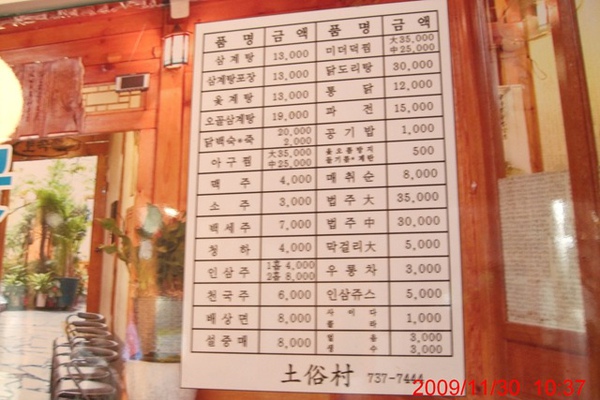 품 명 금 액 품 명 금 액
삼계탕 13,000 미더덕찜 大35,000 中25,000
삼계탕포장 13,000 닭도리탕 30,000
옻계탕 13,000 통 닭 12,000
오골삼계탕 19,000 파 전 15,000
닭백숙+죽 20,000 2,000 공기밥 1,000
아구찜 大35,000 中25,000 500
맥 주 4,000 매취순 8,000
소 주 3,000 법주大 35,000
백세주 7,000 법주中 30,000
청 하 4,000 막걸리大 5,000
인삼주 1홉 4,000 2홉 8,000 우롱차 3,000
천국주 6,000 인삼쥬스 5,000
배상면 8,000 사이다 콜라 1,000
설중매 8,000 생수 3,000 3,000
土俗村 737-7444
2009/11/30 10:37